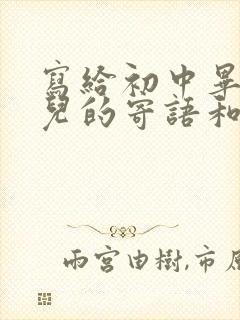 寫給初中畢
兒的寄語和
雨宮由樹,市原